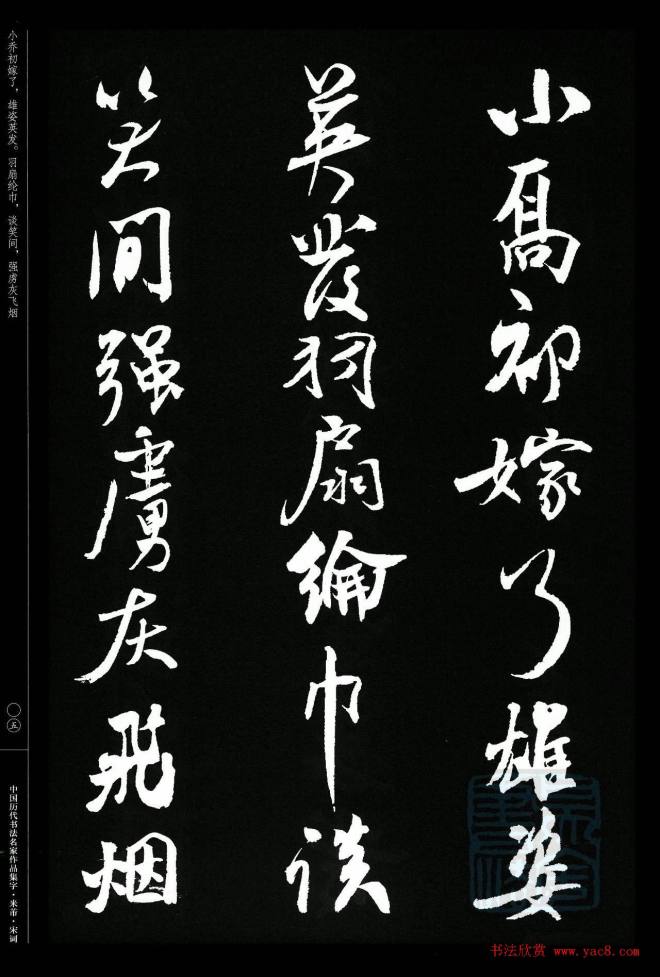 小乔初嫁了雄姿
英发羽扇纶巾谈
笑间强虏灰飞烟
小乔初嫁了，雄姿英发。羽扇纶巾，谈笑间，强虏灰飞烟
〇五
中国历代书法名家作品集字·米芾·宋词
书法欣赏 www.yac8.com